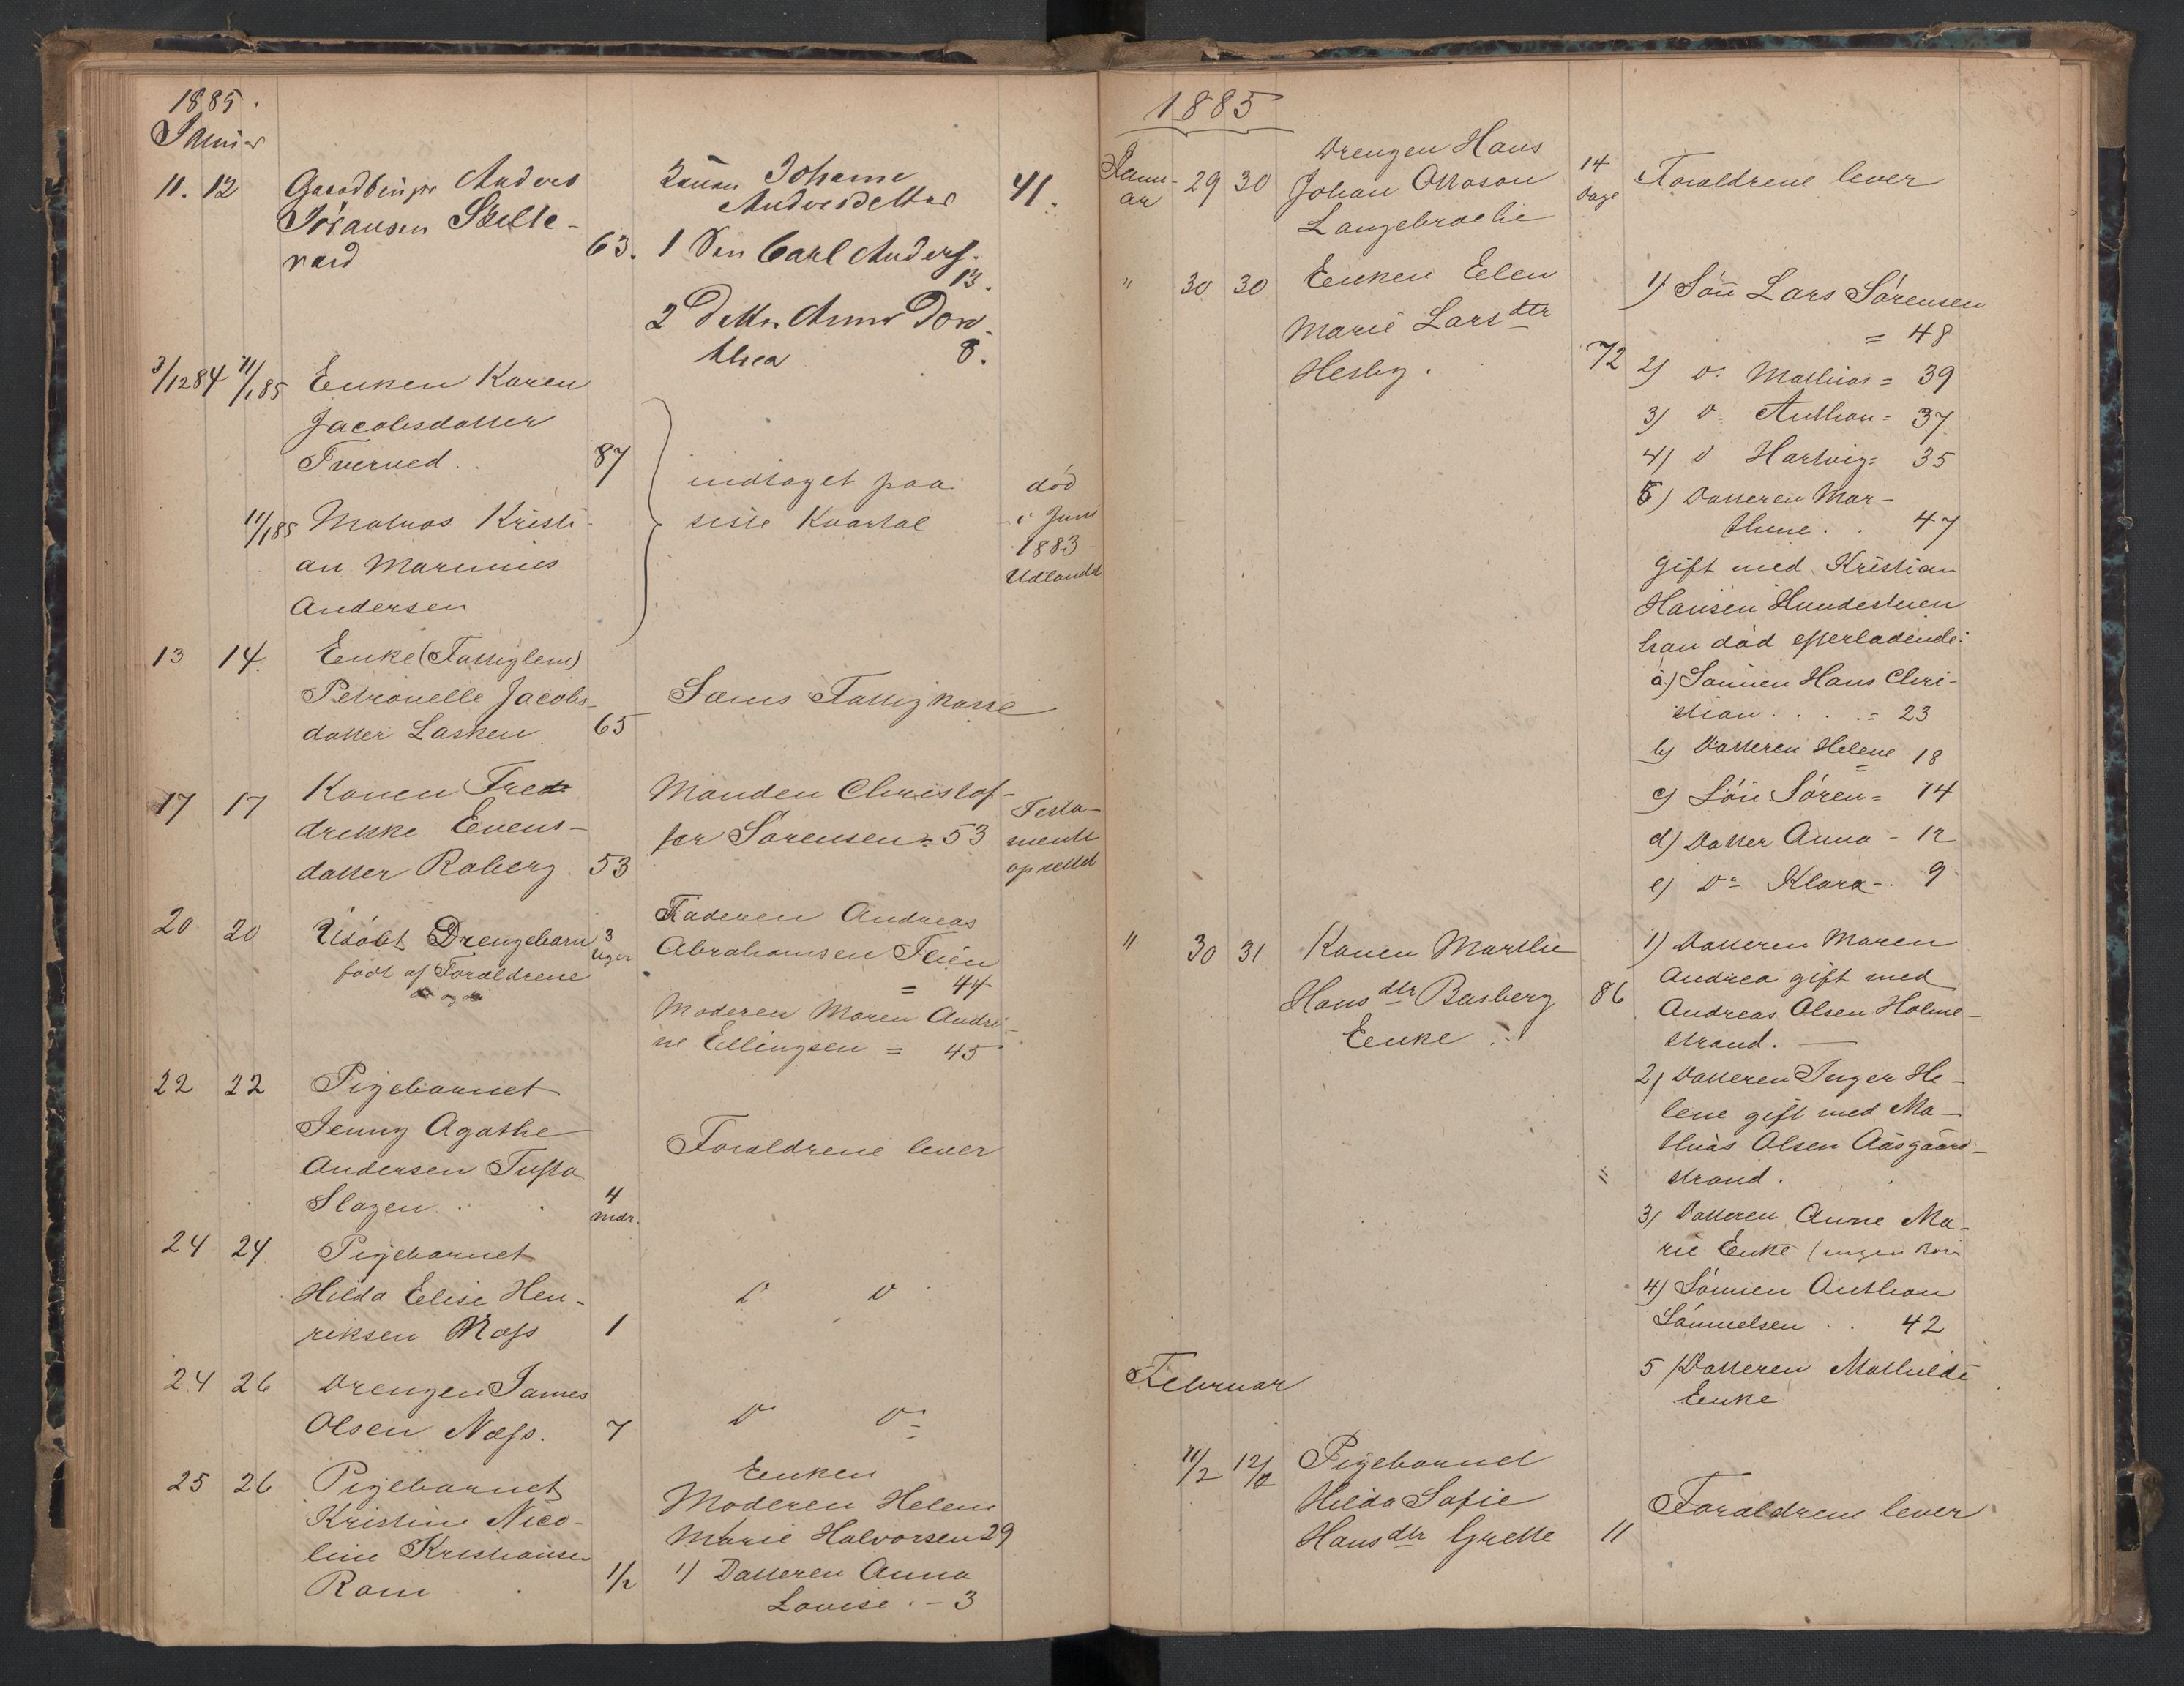 1885.
Januar
11. 12 Gaardbruger Anders
Johansen
63.
Konen Johanne
Andersdatter 41.
1 Søn Carl Anders.
13.
2 Datter Anna Doro-
thea 8.
3/12 84 11/1 85 Enken Karen
Jacobsdatter
Tverved . . 87
11/1 85 Matias Kristi-
an Marinius
Andersen
indtaget paa
siste Kvartal
død
i Juni
1883
Udlandet
13 14. Enke (Fattiglem)
Petronelle Jacobs-
datter Lasken 65
Sæms Fattigkasse
17 17 Konen Fre-
drikke Evens-
datter Roberg 53
Manden Christof-
fer Sørensen = 53
Testa-
mente
oprettet
20 20 Udøbt Drengebarn
født af Forældrene
3
Uger
Faderen Andreas
Abrahamsen Teien
= 44
Moderen Maren Andri-
ne Ellingsen = 45
22 22 Pigebarnet
Jenny Agathe
Andersen Tufta
Slagen . . 4
Mdr.
Forældrene lever
24 24 Pigebarnet
Hilda Elise Hen-
riksen Næss 1
D D
24 26 Drengen James
Olsen Næss. 7
D D
25 26 Pigebarnet
Kristine Nico-
line Kristiansen
Ram . . 1/2
Enken
Moderen Helene
Marie Halvorsen 29
1) Datteren Anna
Louise . - 3
1885
Janu-
ar 29 30 Drengen Hans
Johan Ottoson
Langebrække
14
Dage
Forældrene lever
" 30 30 Enken Elen
Marie Larsdtr
Hesby . 72
1) Søn Lars Sørensen
= 48
2) D: Mathias = 39
3) D= Anthon = 37
4) D Hartvig = 35
5) Datteren Mar-
thine . . 47
gift med Kristian
Hansen Hundestuen
han død efterladende:
a) Sønnen Hans Chri-
stian . . . . = 23
b) Datteren Helene 18
c) Søn Søren = 14
d) Datter Anna - 12
e) D= Klara - . 9
" 30 31 Konen Marthe
Hansdtr Basberg 86
Enke :
1) Datteren Maren
Andrea gift med
Andreas Olsen Holme-
strand. —
2) Datteren Inger He-
lene gift med Ma-
thias Olsen Aasgaard-
strand .
3) Datteren Anne Ma-
rie Enke (ingen Børn
4) Sønnen Anthon
Samuelsen . . 42
5) Datteren Mathilde
Enke
Februar
11/2 12/2 Pigebarnet
Hilda Sofie
Hansdtr Grette 11
Forældrene lever